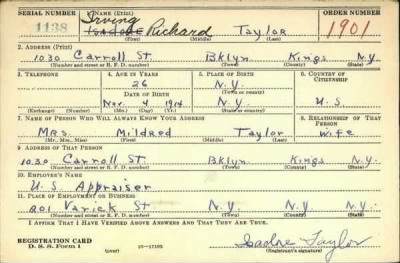 SERIAL NUMBER
1. NAME (Print)
ORDER NUMBER
1138
Irving
Isadore Richard Taylor
1901
(First) (Middle) (Last)
2. ADDRESS (Print)
1030 Carroll St. Bklyn Kings N.Y.
(Number and street or R. F. D. number) (Town) (County) (State)
3. TELEPHONE
4. AGE IN YEARS
5. PLACE OF BIRTH
6. COUNTRY OF CITIZENSHIP
26
N.Y.
DATE OF BIRTH
(Town or county)
Nov. 4 1914
N.Y.
U.S.
(Exchange) (Number)
(Mo.) (Day) (Yr.)
(State or country)
7. NAME OF PERSON WHO WILL ALWAYS KNOW YOUR ADDRESS
8. RELATIONSHIP OF THAT PERSON
Mrs. Mildred Taylor wife
(Mr., Mrs., Miss) (First) (Middle) (Last)
9. ADDRESS OF THAT PERSON
1030 Carroll St. Bklyn Kings N.Y.
(Number and street or R. F. D. number) (Town) (County) (State)
10. EMPLOYER'S NAME
U.S. Appraiser
11. PLACE OF EMPLOYMENT OR BUSINESS
201 Varick St. N.Y. N.Y. N.Y.
(Number and street or R. F. D. number) (Town) (County) (State)
I AFFIRM THAT I HAVE VERIFIED ABOVE ANSWERS AND THAT THEY ARE TRUE.
REGISTRATION CARD
D. S. S. FORM 1
(over)
16-17105
Isadore Taylor
(Registrant's signature)